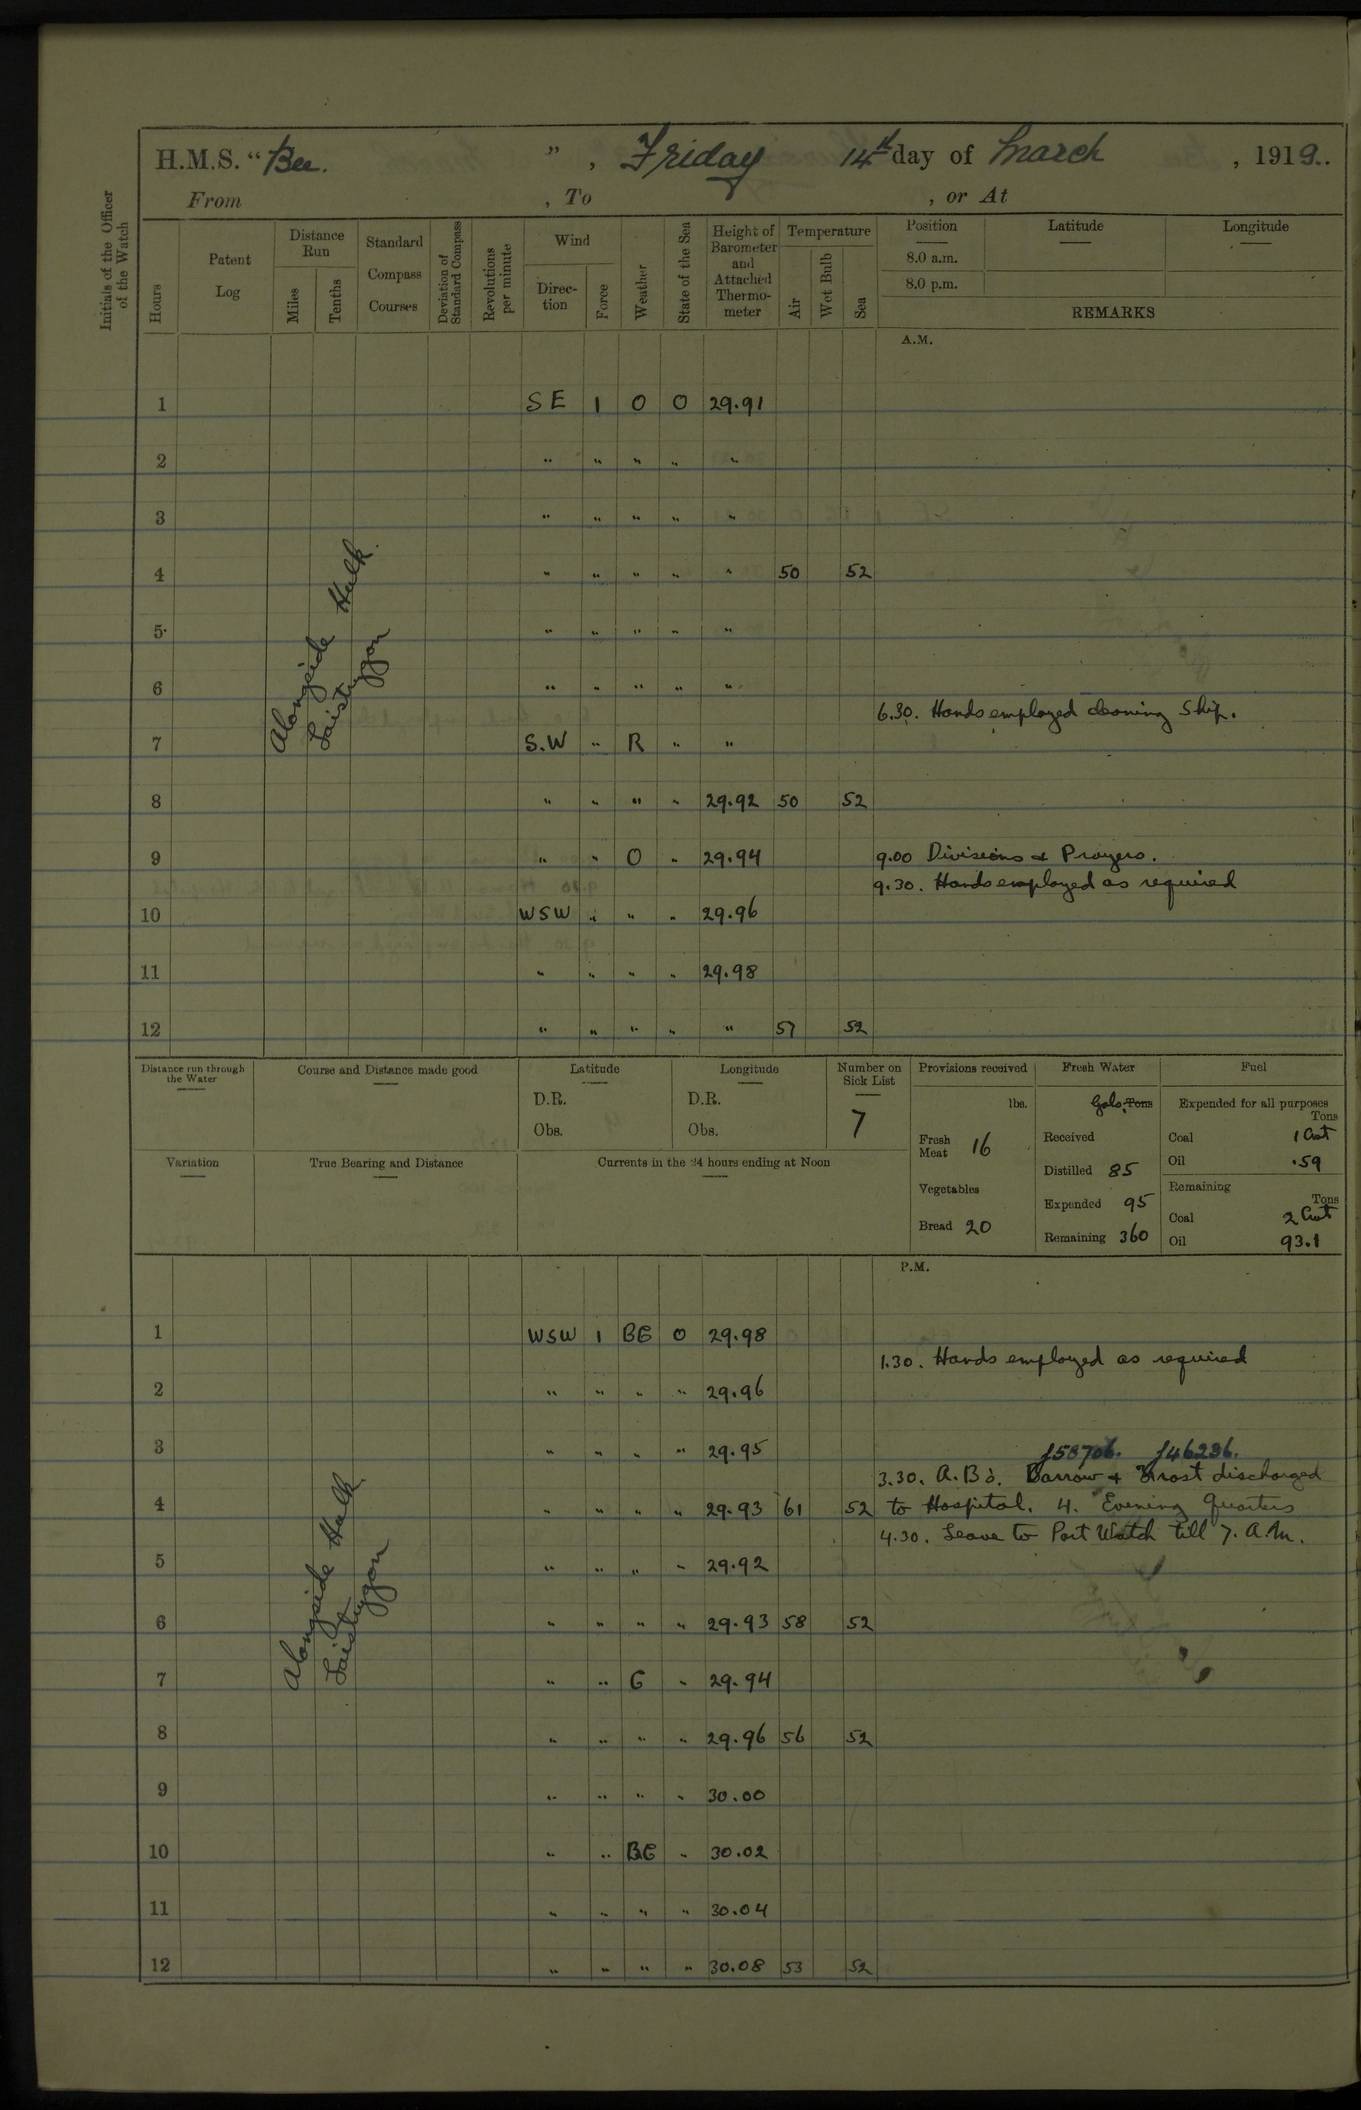 H.M.S. "Bee.", Friday 14th day of March, 1919.
From , To , or At
Initials of the Officer of the Watch
Hours
Patent Log
Distance Run
Miles
Tenths
Standard Compass Courses
Deviation of Standard Compass
Revolutions per minute
Wind
Direction
Force
Weather
State of the Sea
Height of Barometer and Attached Thermometer
Temperature
Air
Wet Bulb
Sea
Position
8.0 a.m.
8.0 p.m.
Latitude
Longitude
REMARKS
A.M.
1 SE 1 O O 29.91
2 " " " " "
3 " " " " "
4 " " " " " 50 52
5 " " " " "
6 " " " " "
6.30. Hands employed cleaning Ship.
7 S.W " R " "
8 " " " " 29.92 50 52
9 " " O " 29.94 9.00 Divisions & Prayers.
9.30. Hands employed as required
10 WSW " " " 29.96
11 " " " " 29.98
12 " " " " " 57 52
Alongside Hulk
Distance run through the Water
Course and Distance made good
Latitude
D.R.
Obs.
Longitude
D.R.
Obs.
Number on Sick List
7
Variation
True Bearing and Distance
Currents in the 24 hours ending at Noon
Provisions received
lbs.
Fresh Meat 16
Vegetables
Bread 20
Fresh Water
Gals. Tons
Received
Distilled 85
Expended 95
Remaining 360
Fuel
Expended for all purposes
Tons
Coal 1 Cwt
Oil .59
Remaining
Tons
Coal 2 Cwt
Oil 93.1
P.M.
1 WSW 1 BC O 29.98
1.30. Hands employed as required
2 " " " " 29.96
3 " " " " 29.95
J58706. J46236.
3.30. A.Bs. Barrow & Frost discharged
4 " " " " 29.93 61 52 to Hospital. 4. Evening Quarters
4.30. Leave to Port Watch till 7. A.M.
5 " " " " 29.92
6 " " " " 29.93 58 52
7 " " C " 29.94
8 " " " " 29.96 56 52
9 " " " " 30.00
10 " " BC " 30.02
11 " " " " 30.04
12 " " " " 30.08 53 52
Alongside Hulk